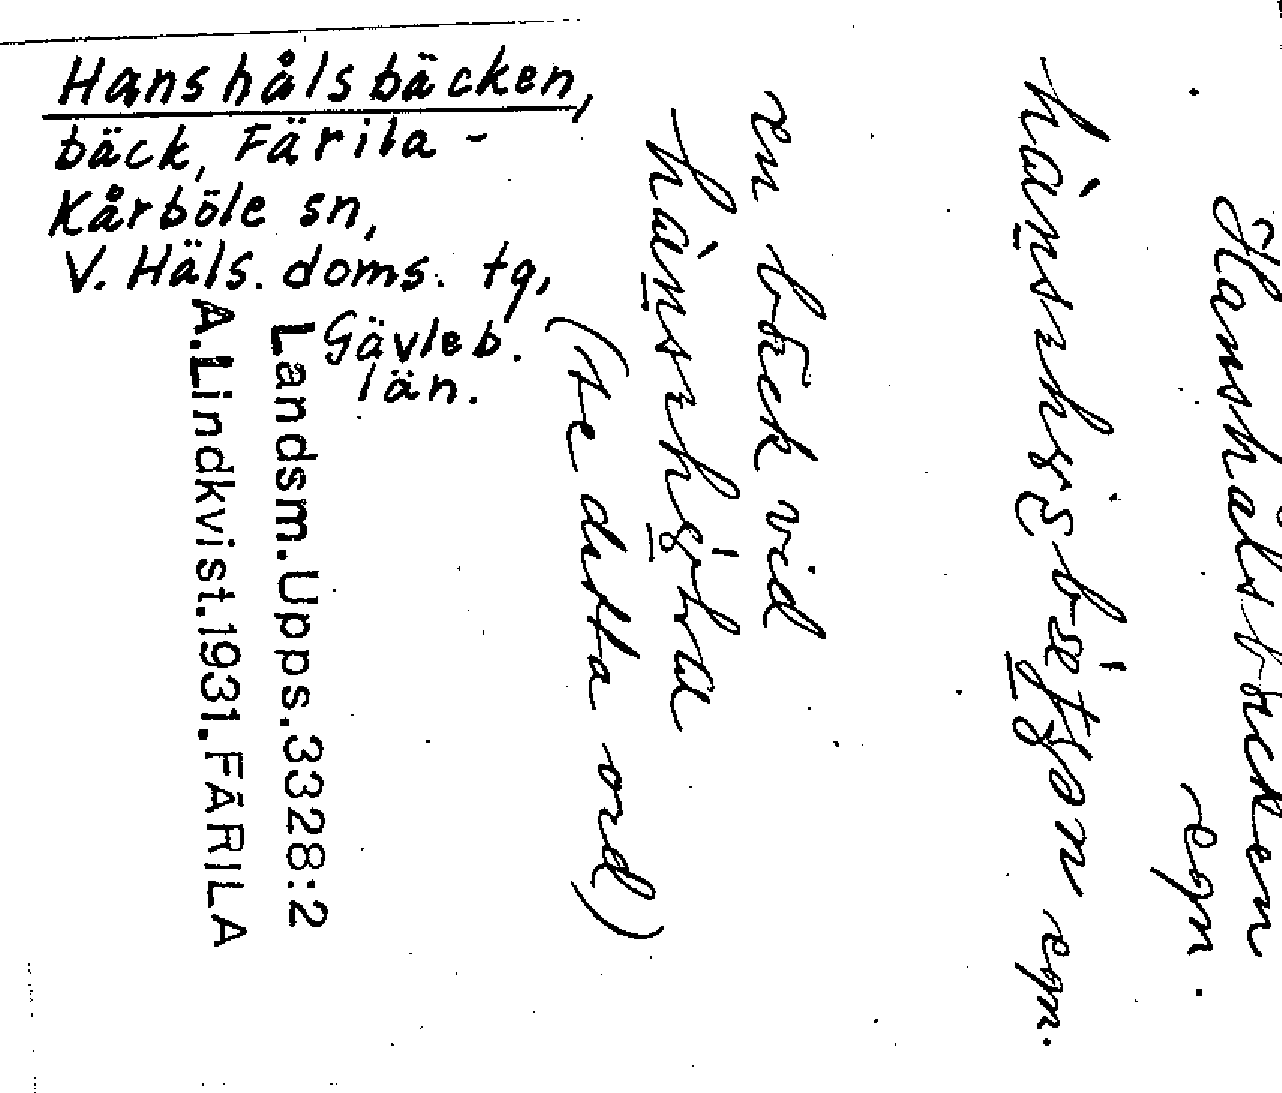 Hanshålsbäcken,
bäck, Färila -
Kårböle sn,
V. Häls. doms. tg,
Gävleb.
län.
Hanshålsbäcken
egn.
egn.
en bäck vid
(se detta ord)
Landsm. Upps. 3328:2
A. Lindkvist. 1931. FÄRILA